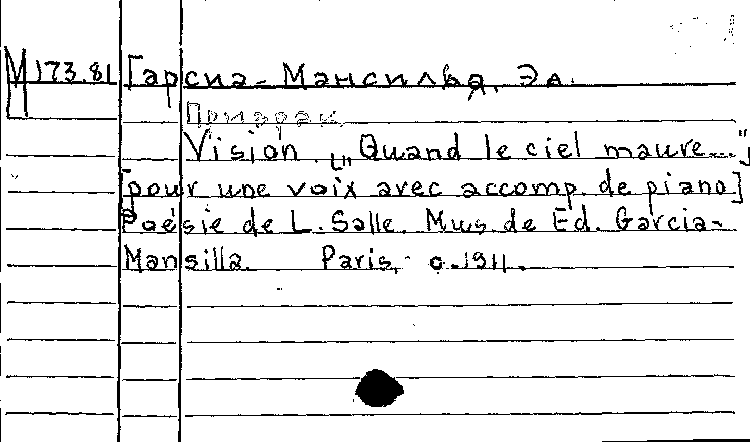 М 173.81 Гарсиа-Мансилья, Эд.
Призрак
Vision. ["Quand le ciel maure..."]
[pour une voix avec accomp. de piano]
Poésie de L. Salle. Mus. de Ed. Garcia-
Mansilla. Paris, c. 1911.